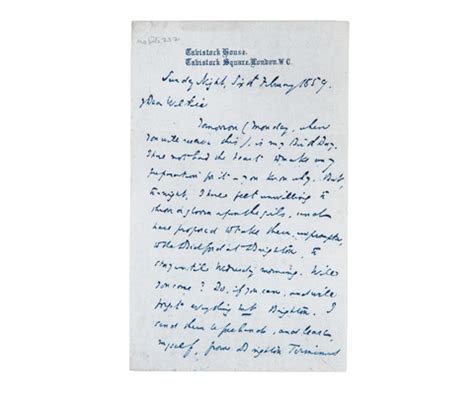 Tavistock House.
Tavistock Square, London. W.C.
Sunday Night, Sixth February 1859.
My Dear Wilkie
Tomorrow (Monday, when
you will receive this), is my Birth Day.
I have not had the heart to make any
preparation for it – you know why. But,
tonight, I have felt unwilling to
throw a gloom upon the girls, and
have proposed to take them, impromptu,
to the Bedford at Brighton, to
stay until Wednesday morning. Will
you come? Do, if you can, and we will
forget everything but Brighton. I
send them beforehand, and
myself, from Brighton Terminus